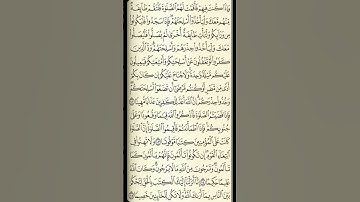 وَإِذَا كُنتَ فِيهِمْ فَأَقَمْتَ لَهُمُ ٱلصَّلَوٰةَ فَلْتَقُمْ طَآئِفَةٌ
مِّنْهُم مَّعَكَ وَلْيَأْخُذُوٓا۟ أَسْلِحَتَهُمْ فَإِذَا سَجَدُوا۟ فَلْيَكُونُوا۟
مِن وَرَآئِكُمْ وَلْتَأْتِ طَآئِفَةٌ أُخْرَىٰ لَمْ يُصَلُّوا۟ فَلْيُصَلُّوا۟
مَعَكَ وَلْيَأْخُذُوا۟ حِذْرَهُمْ وَأَسْلِحَتَهُمْ وَدَّ ٱلَّذِينَ
كَفَرُوا۟ لَوْ تَغْفُلُونَ عَنْ أَسْلِحَتِكُمْ وَأَمْتِعَتِكُمْ فَيَمِيلُونَ
عَلَيْكُم مَّيْلَةً وَٰحِدَةً وَلَا جُنَاحَ عَلَيْكُمْ إِن كَانَ بِكُمْ
أَذًى مِّن مَّطَرٍ أَوْ كُنتُم مَّرْضَىٰٓ أَن تَضَعُوٓا۟ أَسْلِحَتَكُمْ
وَخُذُوا۟ حِذْرَكُمْ إِنَّ ٱللَّهَ أَعَدَّ لِلْكَٰفِرِينَ عَذَابًا مُّهِينًا ١٠٢
فَإِذَا قَضَيْتُمُ ٱلصَّلَوٰةَ فَٱذْكُرُوا۟ ٱللَّهَ قِيَٰمًا وَقُعُودًا وَعَلَىٰ
جُنُوبِكُمْ فَإِذَا ٱطْمَأْنَنتُمْ فَأَقِيمُوا۟ ٱلصَّلَوٰةَ إِنَّ ٱلصَّلَوٰةَ
كَانَتْ عَلَى ٱلْمُؤْمِنِينَ كِتَٰبًا مَّوْقُوتًا ١٠٣ وَلَا تَهِنُوا۟ فِى
ٱبْتِغَآءِ ٱلْقَوْمِ إِن تَكُونُوا۟ تَأْلَمُونَ فَإِنَّهُمْ يَأْلَمُونَ كَمَا
تَأْلَمُونَ وَتَرْجُونَ مِنَ ٱللَّهِ مَا لَا يَرْجُونَ وَكَانَ ٱللَّهُ
عَلِيمًا حَكِيمًا ١٠٤ إِنَّآ أَنزَلْنَآ إِلَيْكَ ٱلْكِتَٰبَ بِٱلْحَقِّ لِتَحْكُمَ
بَيْنَ ٱلنَّاسِ بِمَآ أَرَىٰكَ ٱللَّهُ وَلَا تَكُن لِّلْخَآئِنِينَ خَصِيمًا ١٠٥